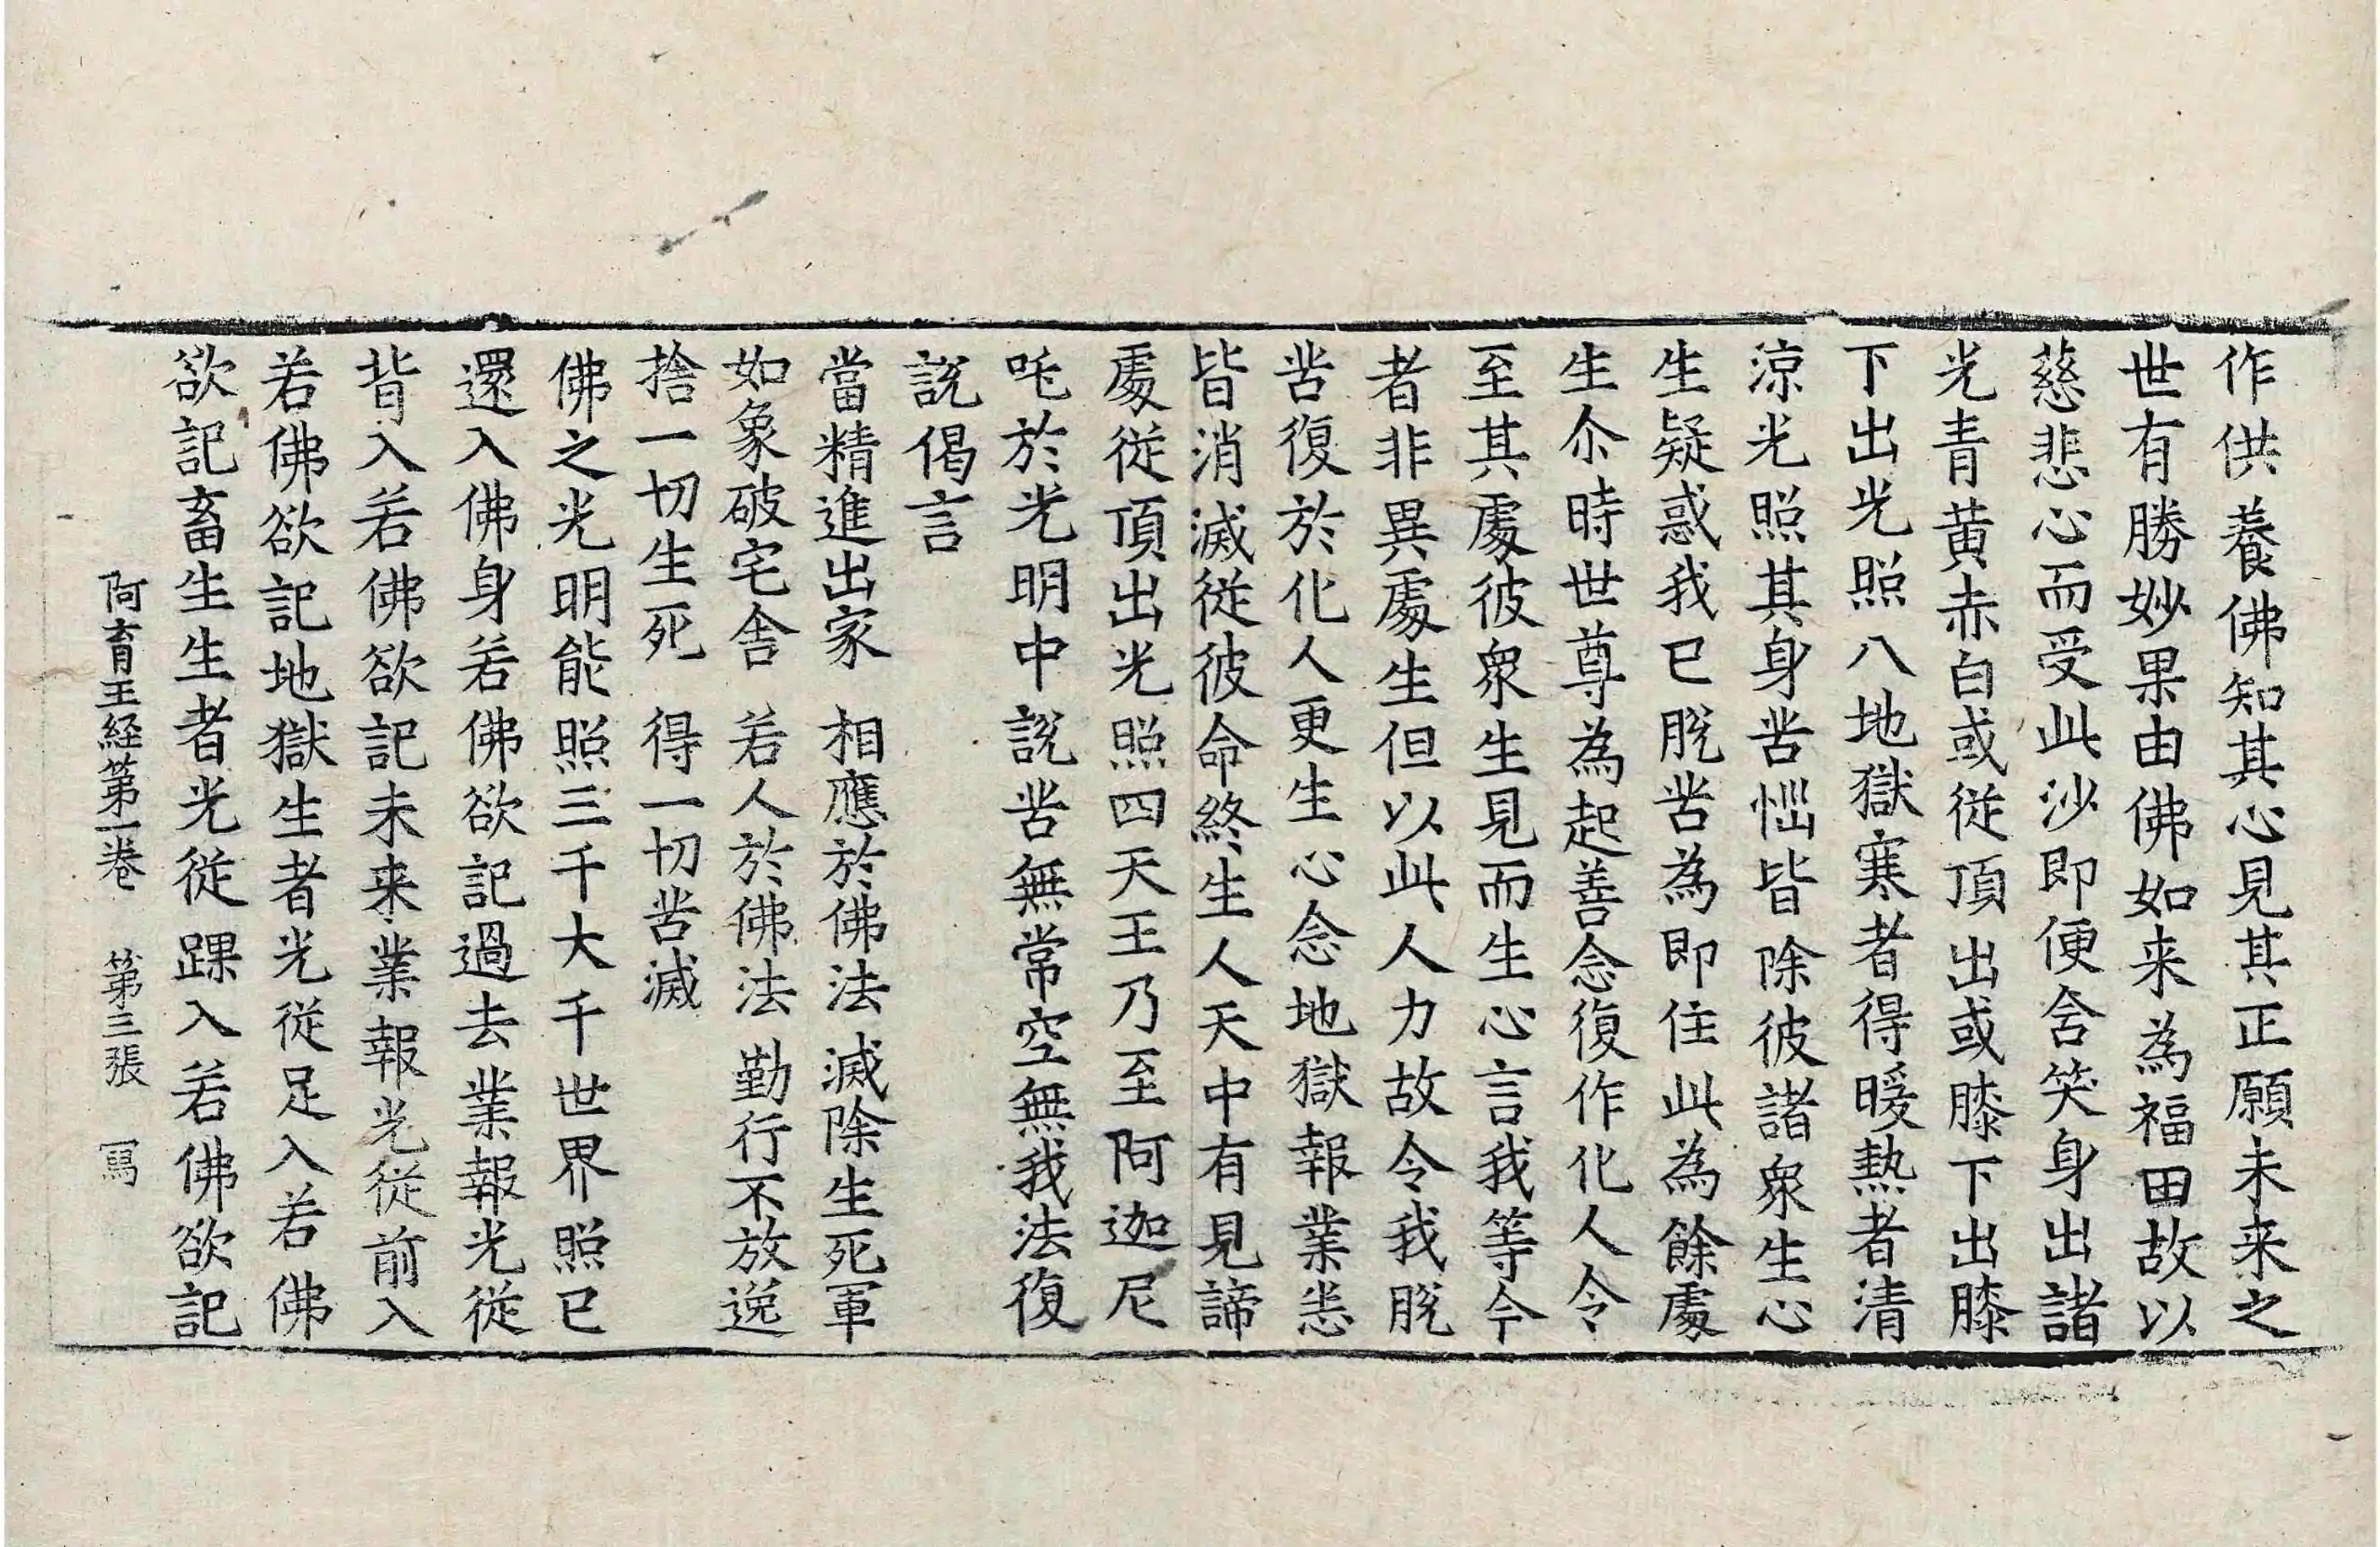 作供養佛知其心見其正願未来之
世有勝妙果由佛如来為福田故以
慈悲心而受此沙即便含笑身出諸
光青黄赤白或従頂出或膝下出膝
下出光照八地獄寒者得暖熱者清
涼光照其身苦惱皆除彼諸衆生心
生疑惑我已脱苦為即住此為餘處
生尒時世尊為起善念復作化人令
至其處彼衆生見而生心言我等今
者非異處生但以此人力故令我脱
苦復於化人更生心念地獄報業悉
皆消滅従彼命終生人天中有見諦
處従頂出光照四天王乃至阿迦尼
吒於光明中說苦無常空無我法復
說偈言
當精進出家　相應於佛法　滅除生死軍
如象破宅舎　若人於佛法　勤行不放逸
捨一切生死　得一切苦滅
佛之光明能照三千大千世界照已
還入佛身若佛欲記過去業報光従
背入若佛欲記未来業報光従前入
若佛欲記地獄生者光従足入若佛
欲記畜生生者光従踝入若佛欲記
阿育王経第一卷　第三張　冩